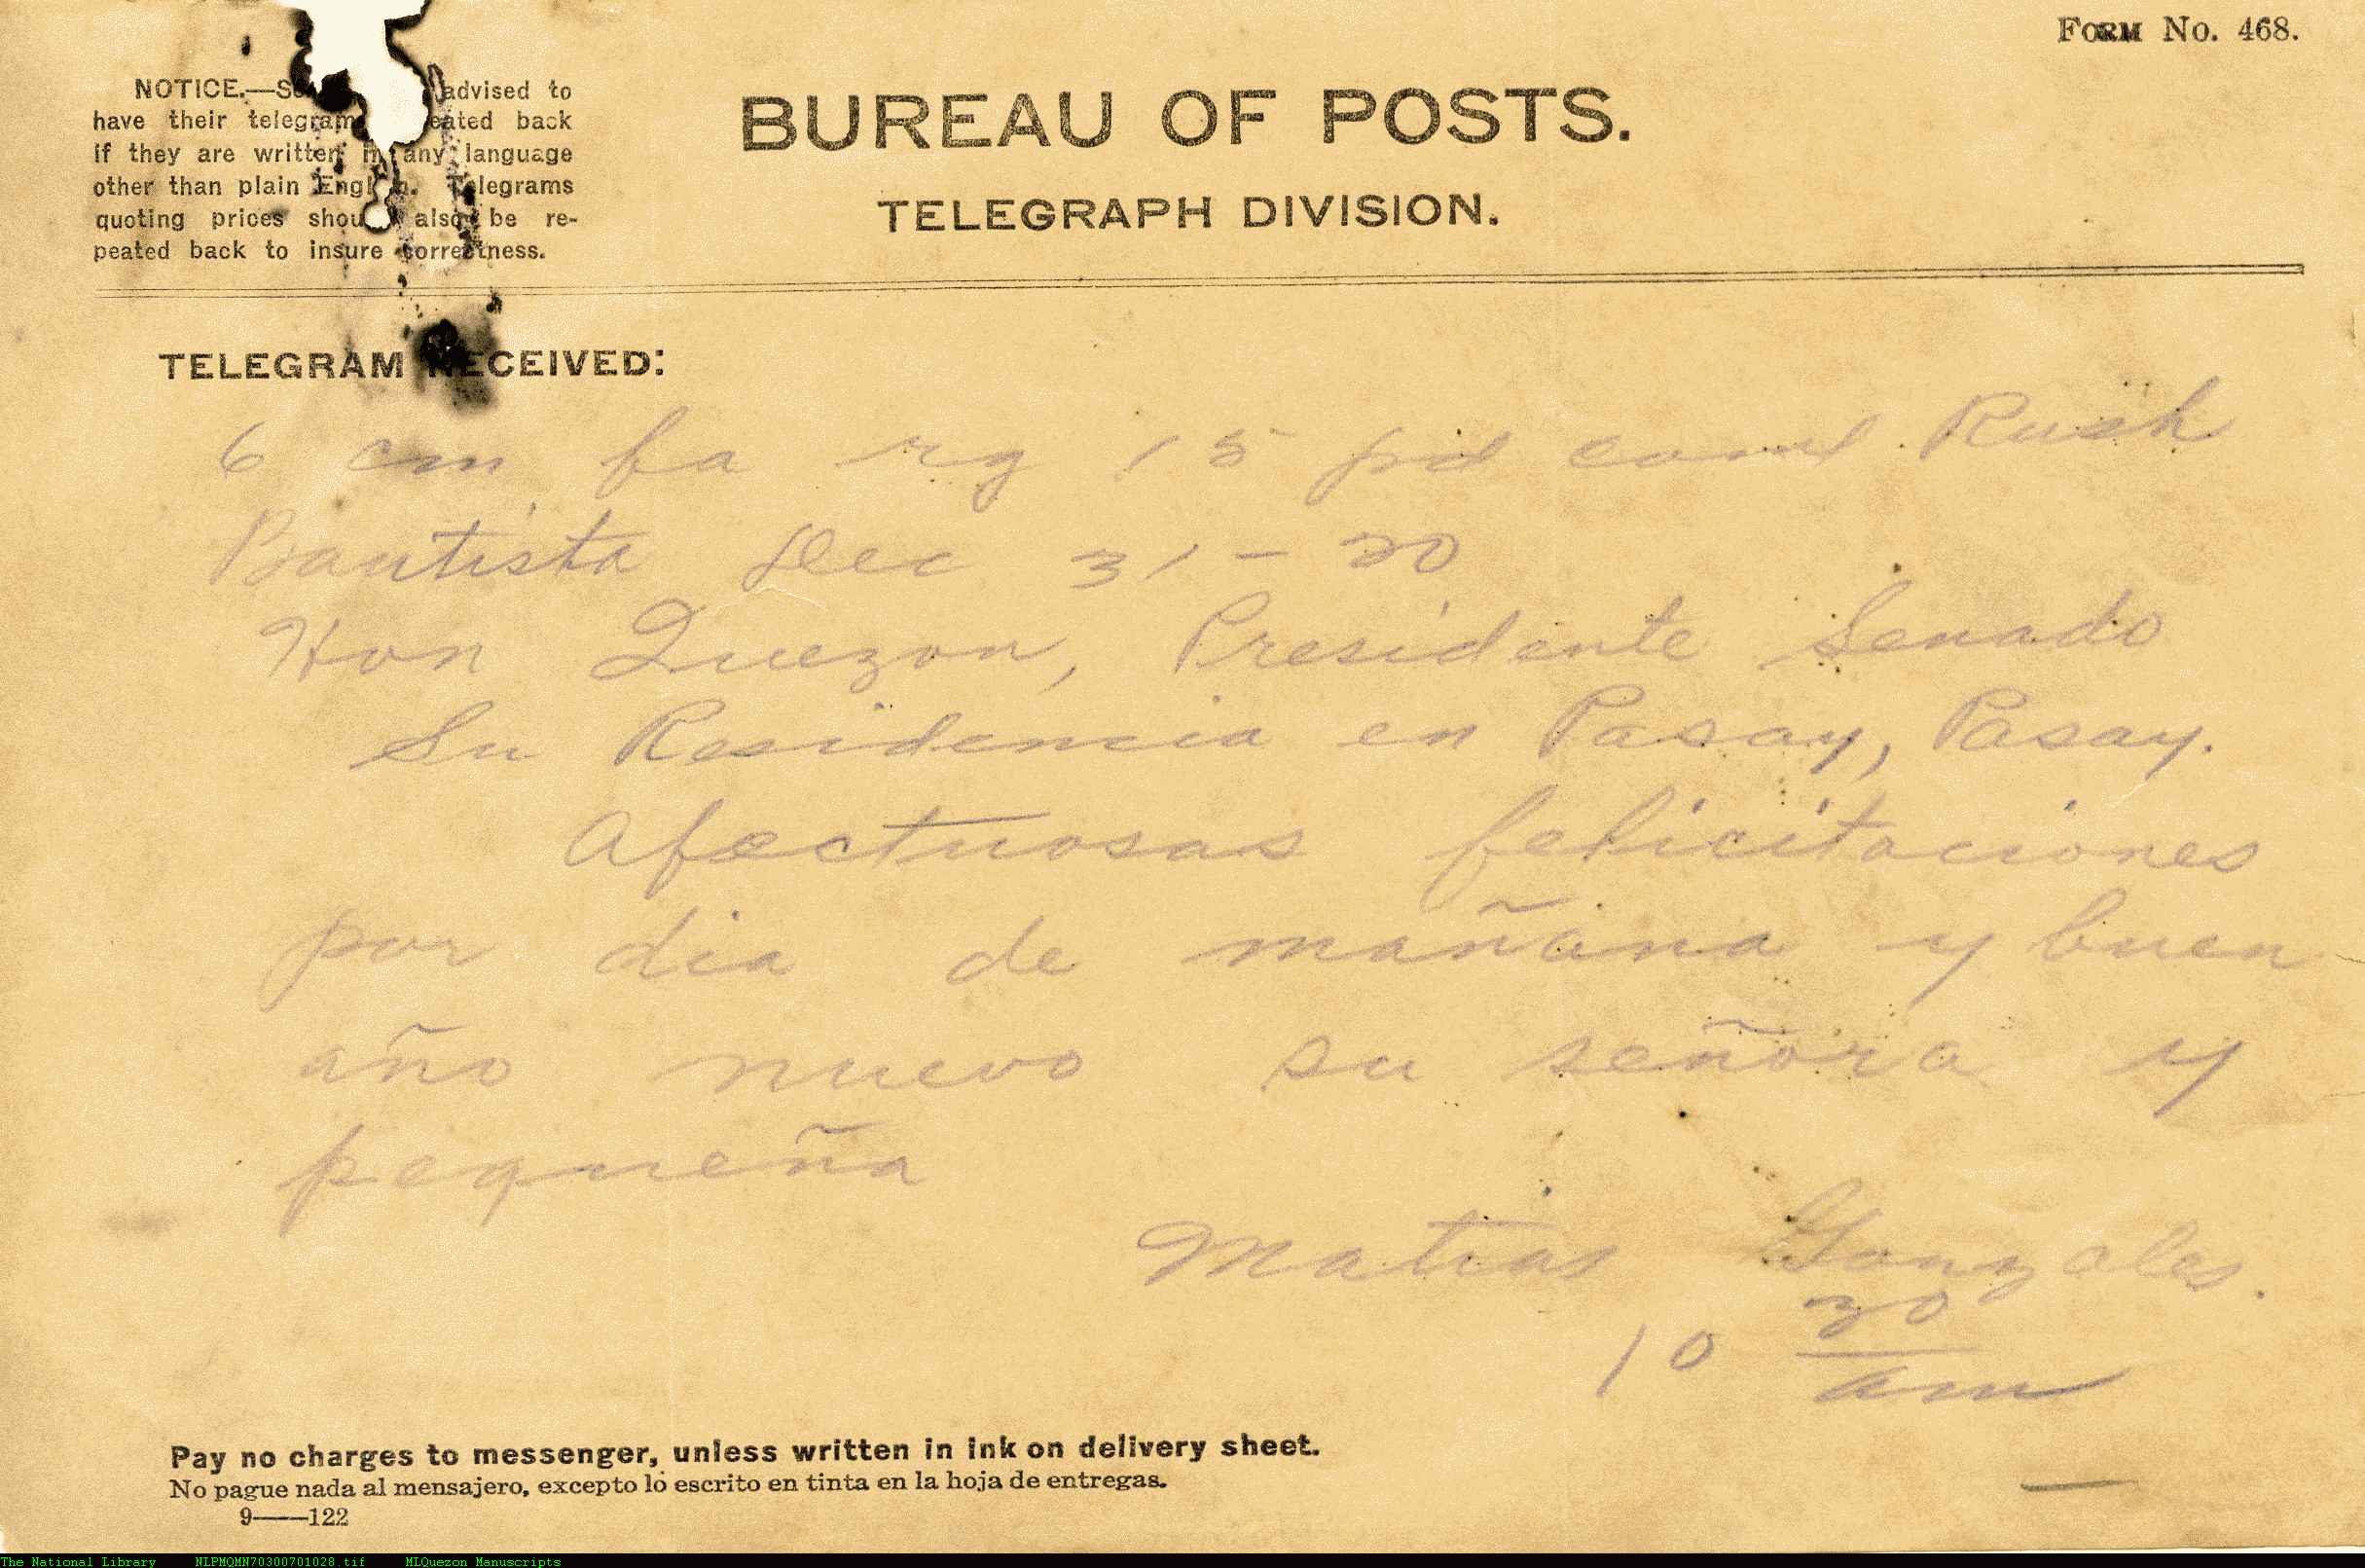 FORM No. 468.
NOTICE.—S advised to
have their telegram eated back
if they are written in any language
other than plain Engl h. Telegrams
quoting prices shou also be re-
peated back to insure correctness.
BUREAU OF POSTS.
TELEGRAPH DIVISION.
TELEGRAM RECEIVED:
6 cm fa rg 15 pd coml Rush
Bautista Dec 31 - 20
Hon Quezon, Presidente Senado
Su Residencia en Pasay, Pasay.
Afectuosas felicitaciones
por dia de mañana y buen
año nuevo su señora y
pequeña
Matias Gonzales.
10 30
am
Pay no charges to messenger, unless written in ink on delivery sheet.
No pague nada al mensajero, excepto lo escrito en tinta en la hoja de entregas.
9——122
The National Library NLPMQMN70300701028.tif MLQuezon Manuscripts